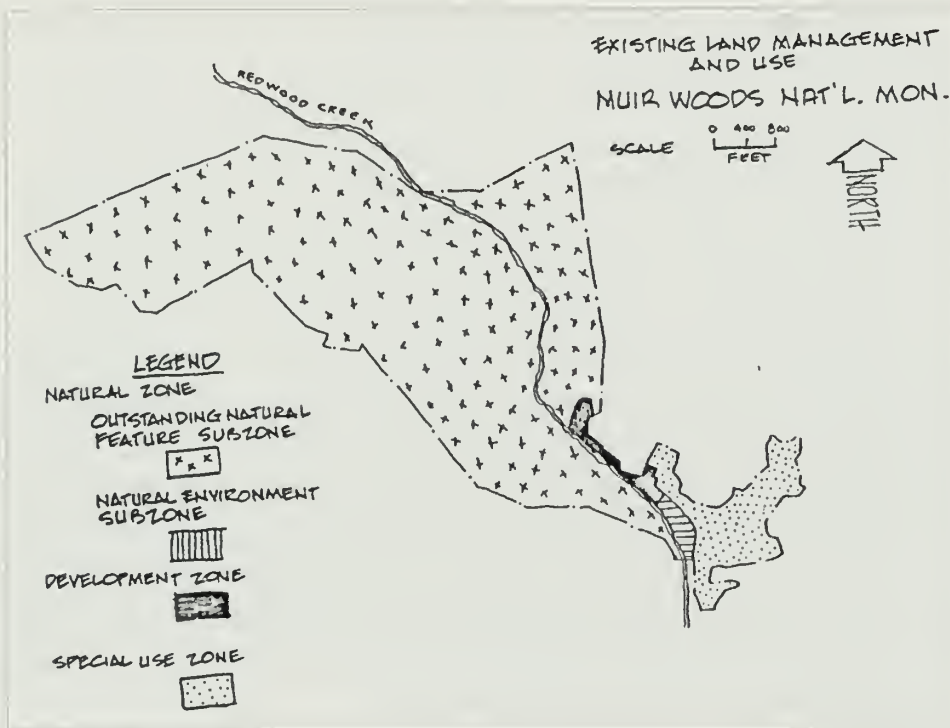 EXISTING LAND MANAGEMENT
AND USE
MUIR WOODS NAT'L. MON.
SCALE
0 400 800
FEET
NORTH
REDWOOD CREEK
LEGEND
NATURAL ZONE
OUTSTANDING NATURAL
FEATURE SUBZONE
NATURAL ENVIRONMENT
SUBZONE
DEVELOPMENT ZONE
SPECIAL USE ZONE